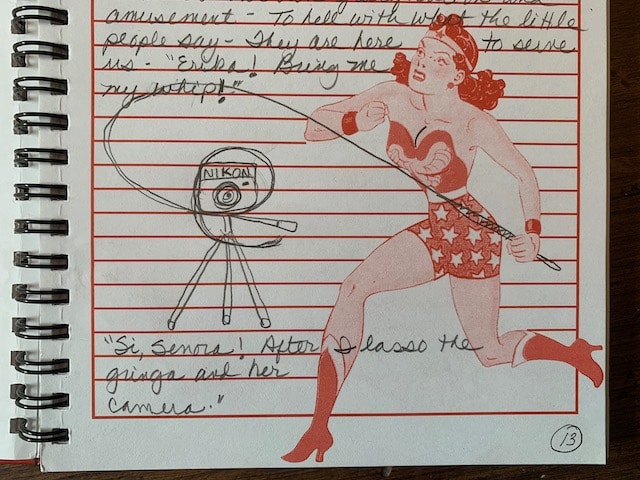 amusement. - To hell with what the little
people say - They are here to serve
us - "Erika! Bring me
my whip!!"
NIKON
"Si, Senora! After I lasso the
gringa and her
camera."
13